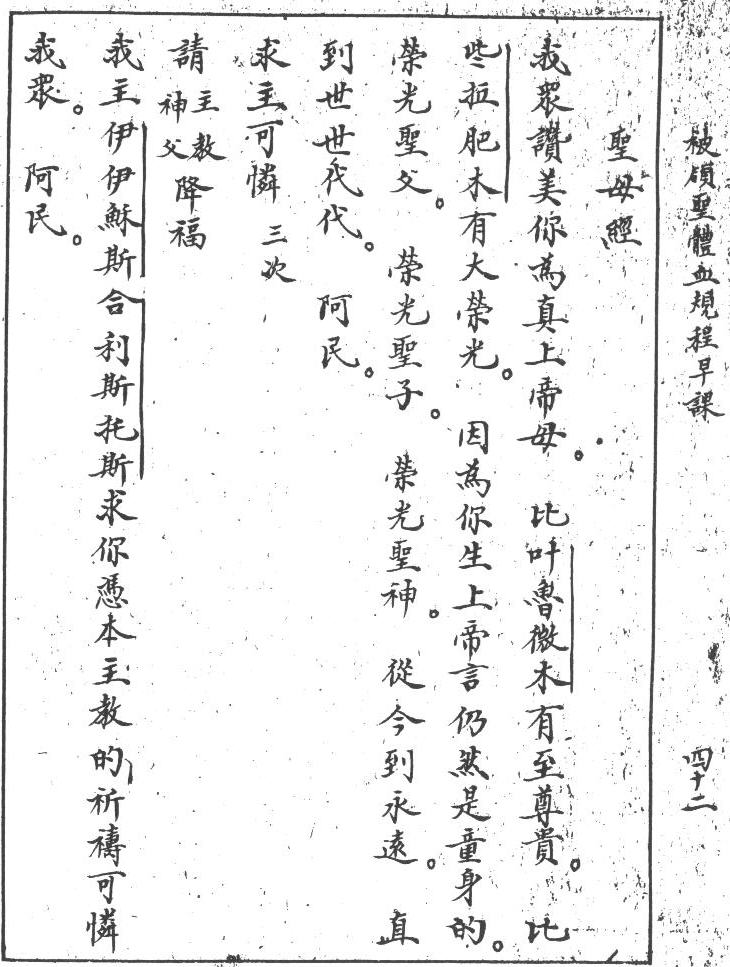 被領聖體血規程早課　四十二
聖母經
我眾讚美你為真上帝母。比叶魯微木有至尊貴。比
些拉肥木有大榮光。因為你生上帝言仍然是童身的。
榮光聖父。榮光聖子。榮光聖神。從今到永遠。直
到世世代代。阿民。
求主可憐 三次
請主教神父降福
我主伊伊穌斯合利斯托斯求你憑本主教的祈禱可憐
我眾。阿民。